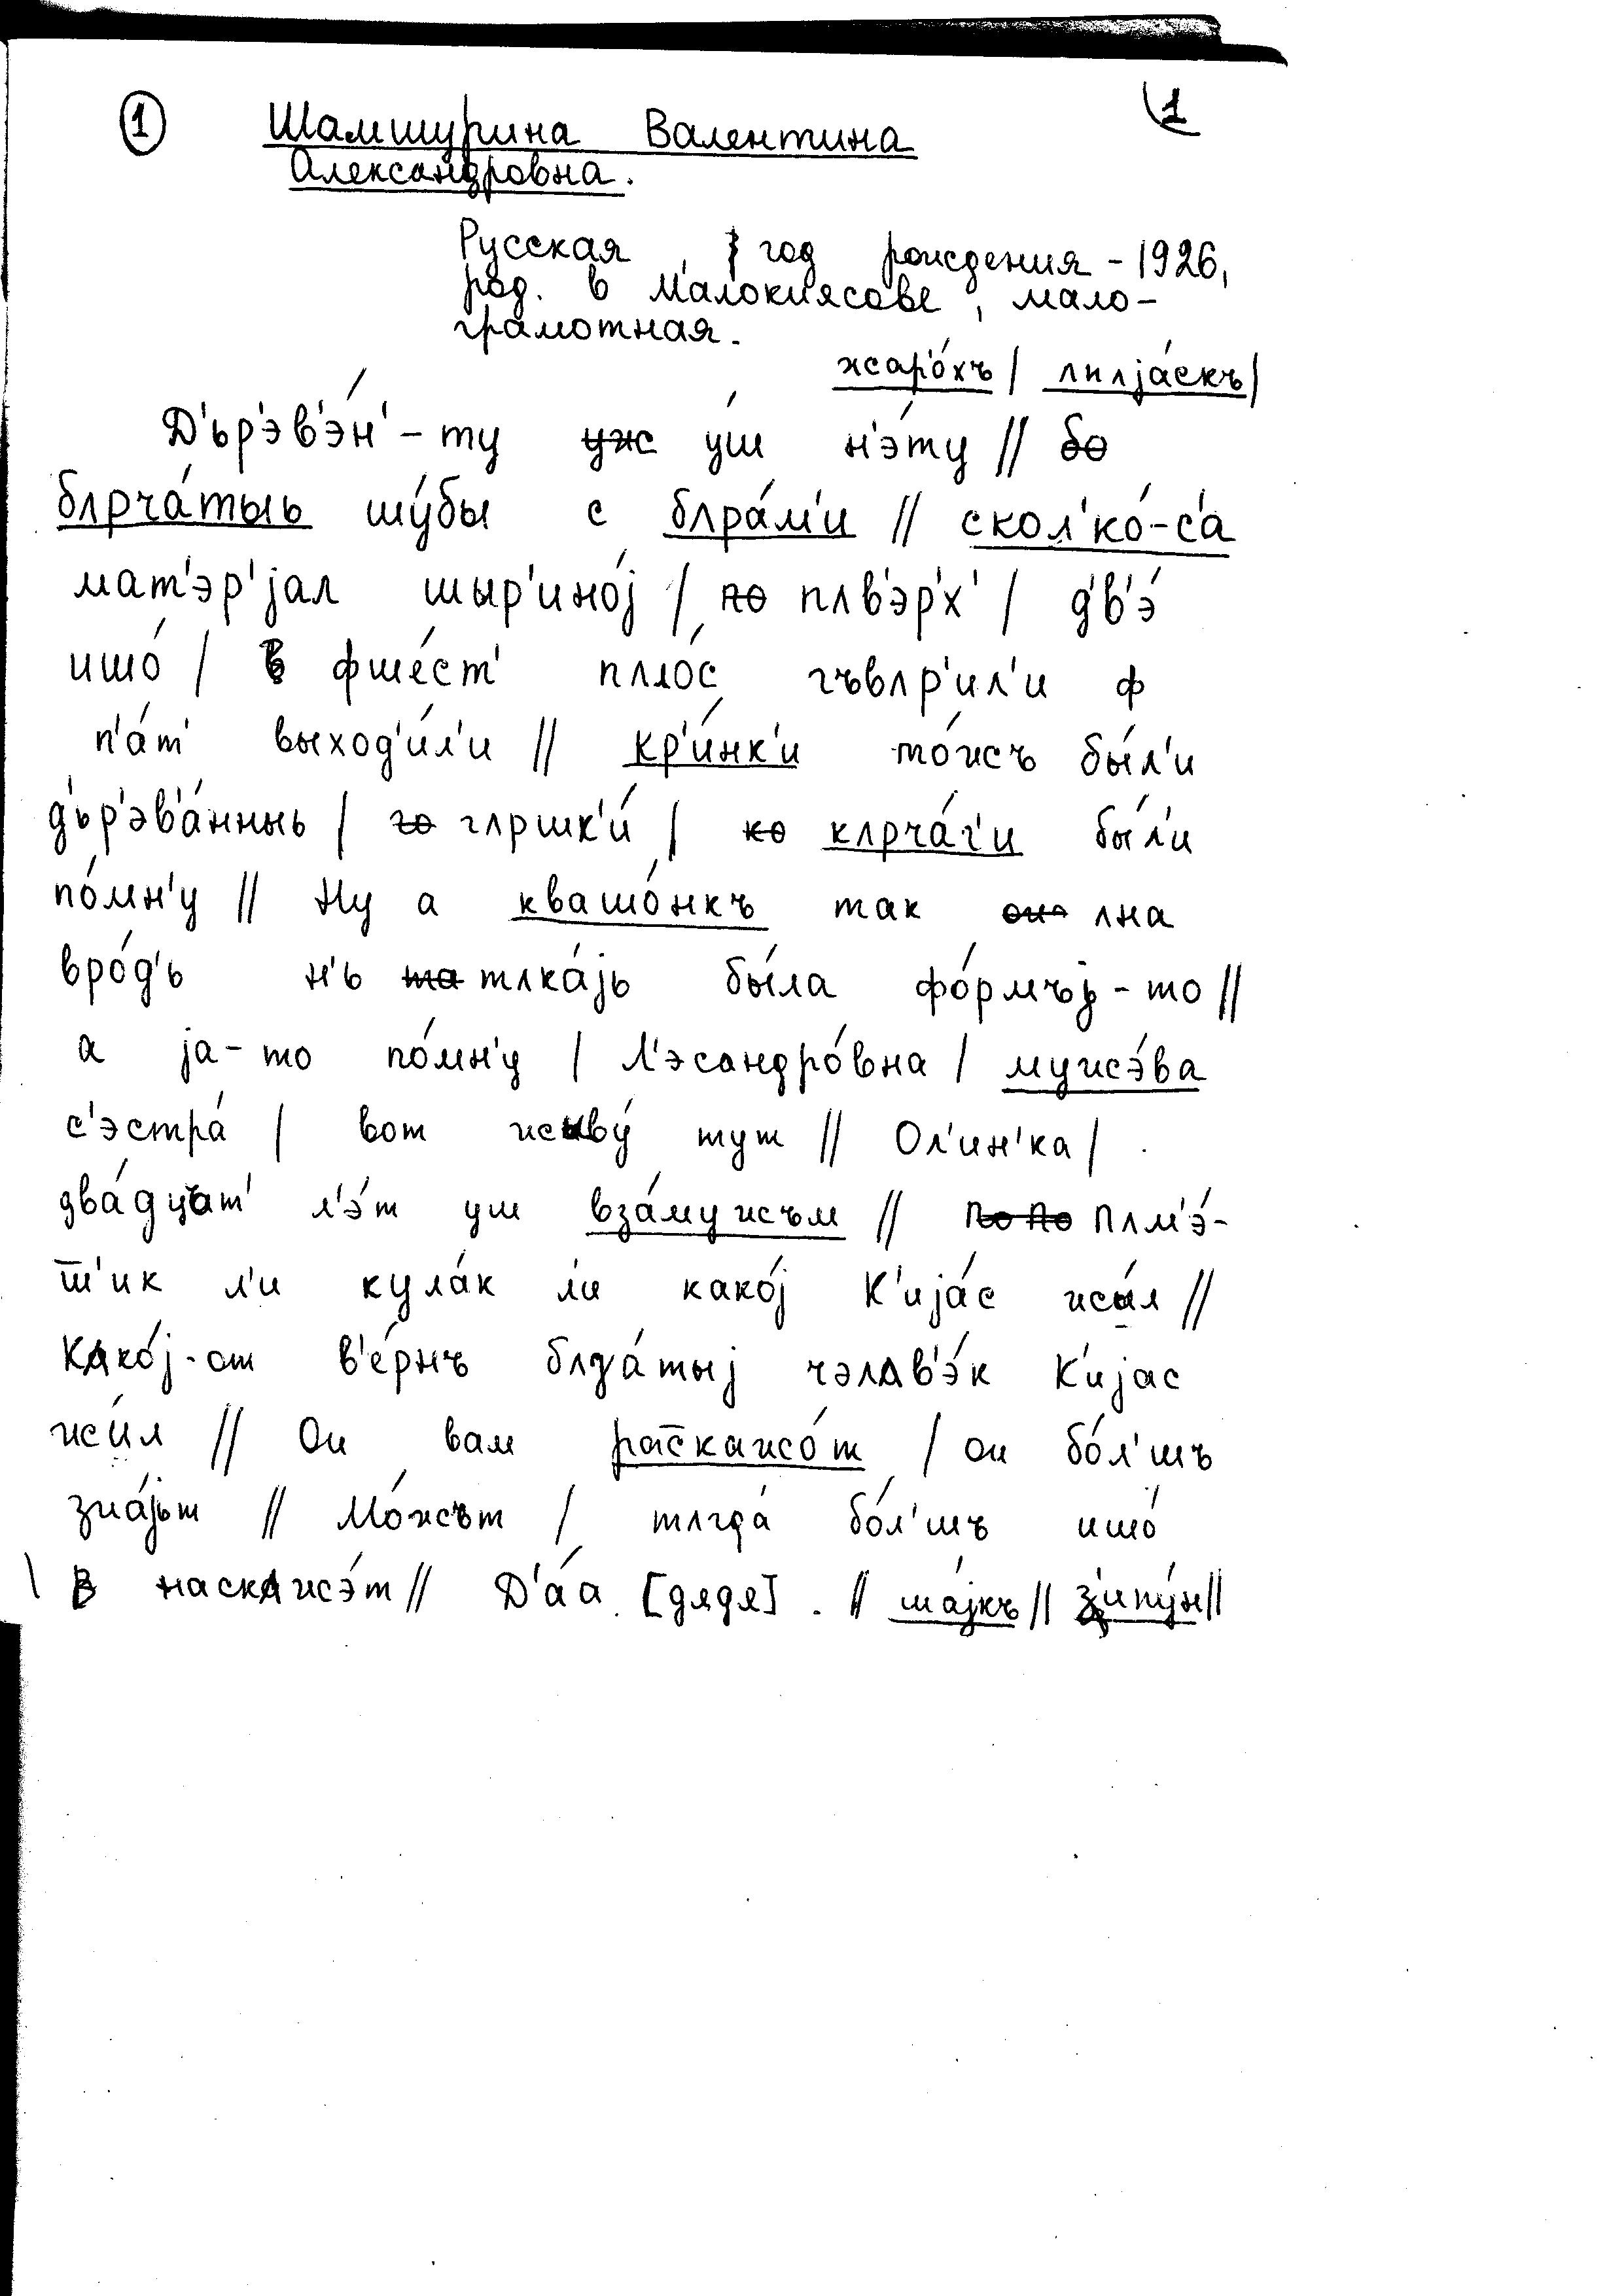 ① Шамшурина Валентина 1
Александровна.
Русская, год рождения - 1926,
род. в Малокиясове, мало-
грамотная.
жаро́хъ / лʌпја́скъ /
Д'ьр'эв'э́н'-ту уж у́ш н'э́ту // бо
бʌрча́тыь шу́бы с бʌра́м'и // скол'ко́-с'а
мат'эр'јал шыр'ино́ј / по пʌв'эр'х' / д'в'э́
ишо́ / в фше́ст' пʌло́с гъвʌр'ил'и ф
п'а́т' выход'и́л'и // кр'и́нк'и то́жъ бы́л'и
д'ьр'эв'а́нныь / го гʌршк'и́ / ко кʌрча́г'и бы́л'и
по́мн'у // Ну а квашо́нкъ так она ʌна
вро́д'ь н'ь та тʌка́јь бы́ла фо́рмъј-то //
а ја-то по́мн'у / Л'эсандро́вна / мужэ́ва
с'эстра́ / вот жыву́ тут // Ол'ин'ка /
два́дцът' л'э́т уш вза́мужъм // по по Пʌм'э́-
т'ик л'и кула́к л'и како́ј К'ија́с жыл //
Како́ј-от в'е́рнъ бʌγа́тыј чэлʌв'э́к К'ијас
жы́л // Он вам раскажо́т / он бо́л'шъ
зна́јьт // Мо́жът / тʌгда́ бо́л'шъ ишо́
в наскʌжэ́т // Д'а́а [дядя]. // ма́јкъ // з'ипу́н //